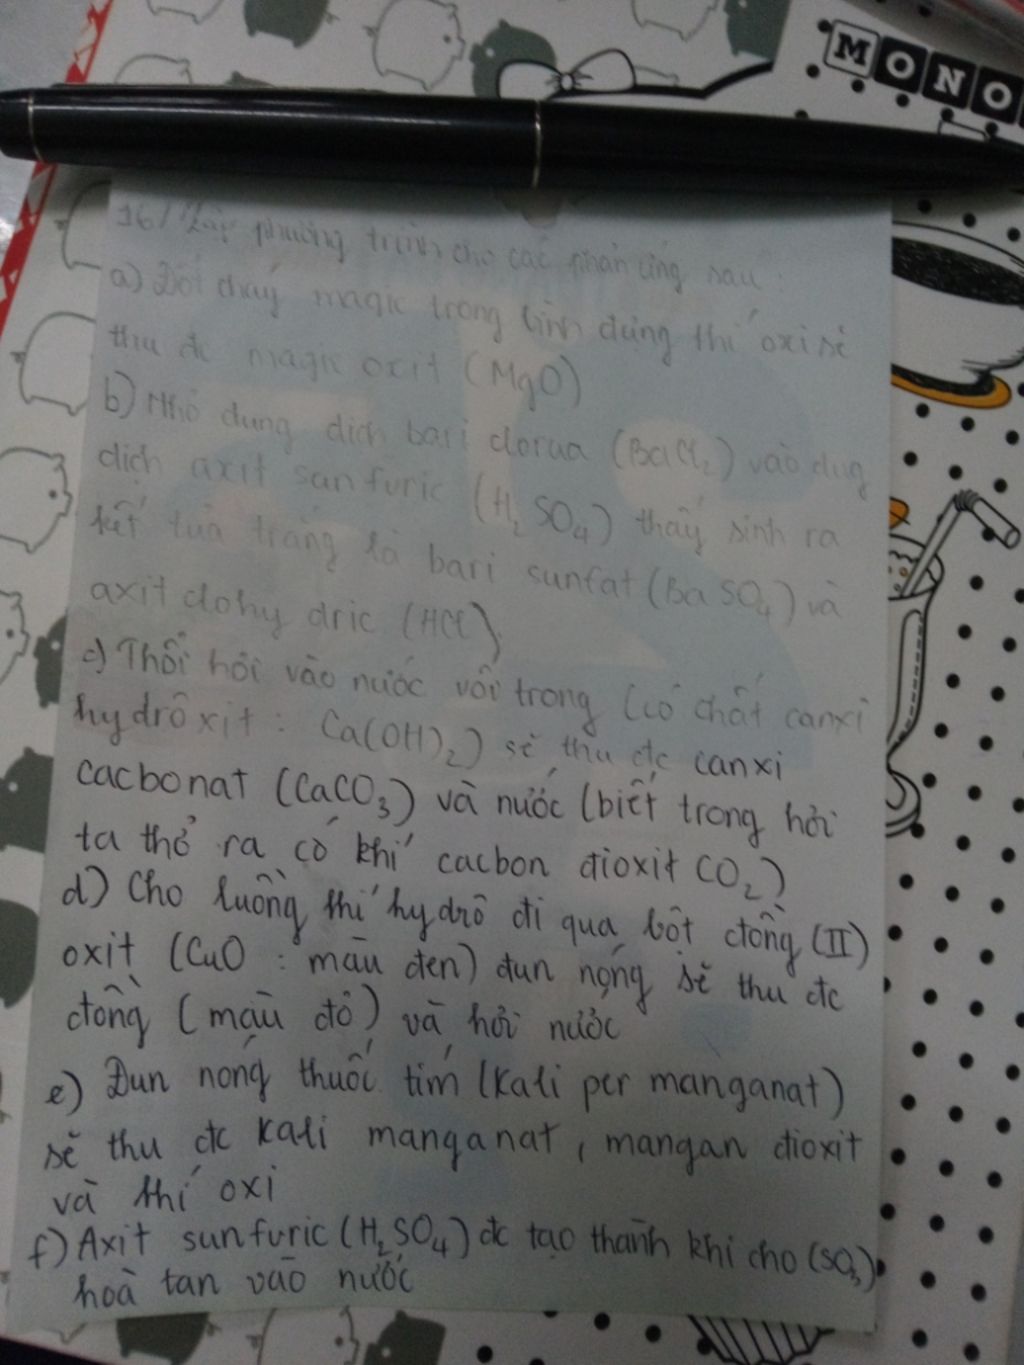 MONO
16/ Lập phương trình cho các phản ứng sau:
a) Đốt cháy magie trong bình đựng khí oxi sẽ
thu đc magie oxit (MgO)
b) Nhỏ dung dịch bari clorua (BaCl₂) vào dug
dịch axit sunfuric (H₂SO₄) thấy sinh ra
kết tủa trắng là bari sunfat (BaSO₄) và
axit clohydric (HCl).
c) Thổi hơi vào nước vôi trong (có chất canxi
hydrôxit : Ca(OH)₂) sẽ thu đc canxi
cacbonat (CaCO₃) và nước (biết trong hơi
ta thở ra có khí cacbon đioxit CO₂)
d) Cho luồng khí hydrô đi qua bột đồng (II)
oxit (CuO : màu đen) đun nóng sẽ thu đc
đồng (màu đỏ) và hơi nước
e) Đun nóng thuốc tím (Kali per manganat)
sẽ thu đc Kali manganat, mangan đioxit
và khí oxi
f) Axit sunfuric (H₂SO₄) đc tạo thành khi cho (SO₃)
hoà tan vào nước